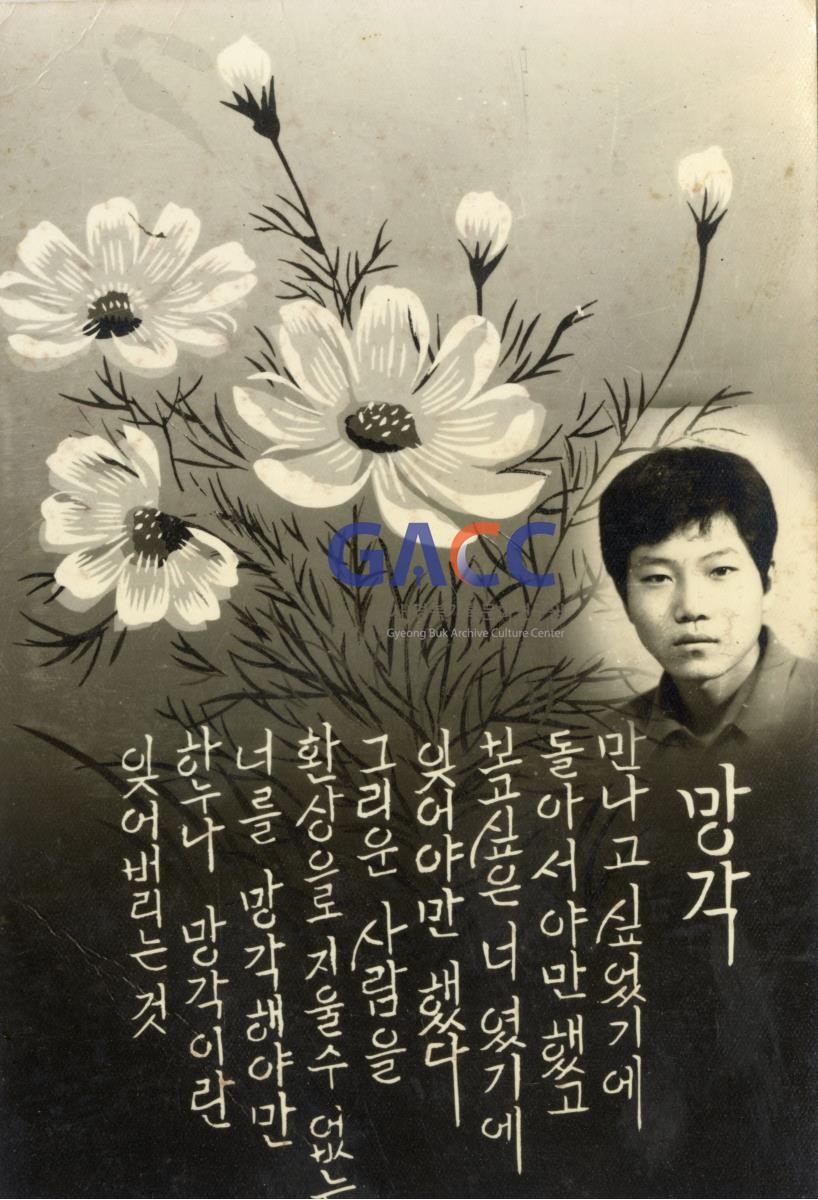 망각
만나고 싶었기에
돌아서야만 했고
보고싶은 너 였기에
잊어야만 했다
그리운 사람을
환상으로 지울수 없는
너를 망각해야만
하누나 망각이란
잊어버리는 것
GACC
Gyeong Buk Archive Culture Center